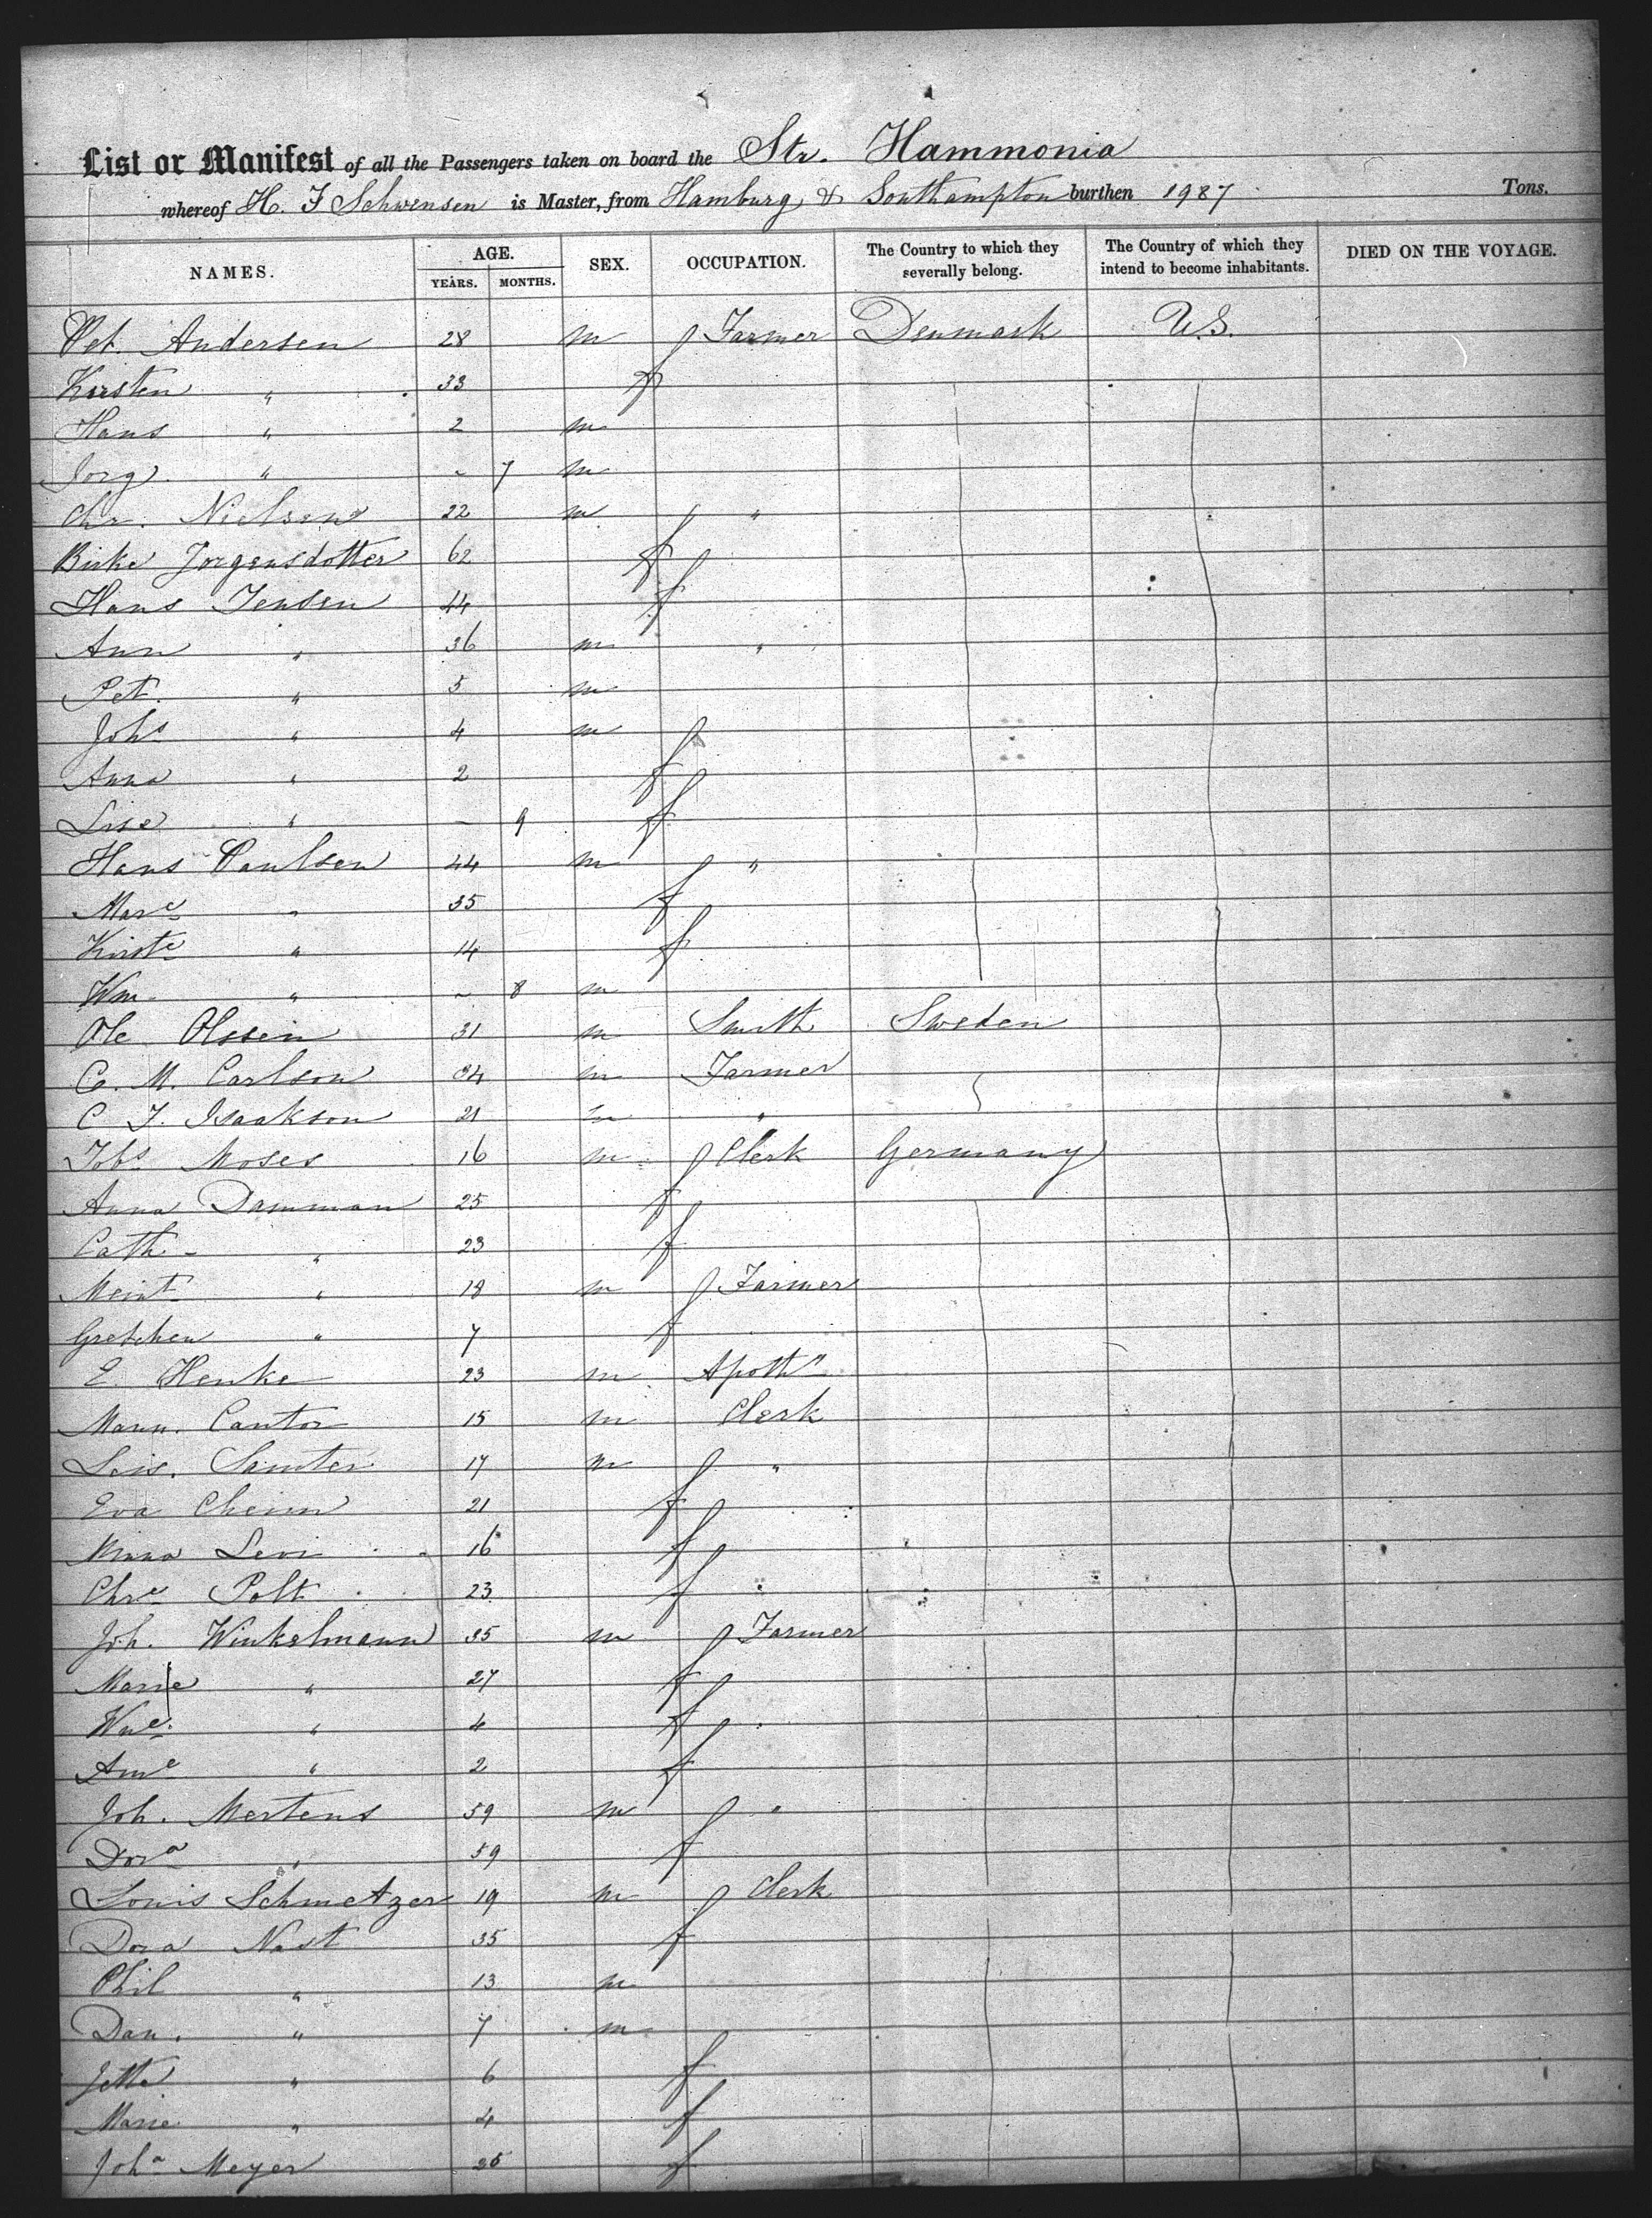 List or Manifest of all the Passengers taken on board the Str. Hammonia
whereof H. F Schwensen is Master, from Hamburg & Southampton burthen 1987 Tons.
NAMES. AGE. YEARS. MONTHS. SEX. OCCUPATION. The Country to which they severally belong. The Country of which they intend to become inhabitants. DIED ON THE VOYAGE.
Pet. Andersen 28 m Farmer Denmark U.S.
Kirsten " 33 f
Hans " 2 m
Jorg. " - 7 m
Chr. Nielsen 22 m "
Birke Jorgensdotter 62 f
Hans Jensen 44 f
Ann " 36 m "
Pet. " 5 m
Johs " 4 m
Anna " 2 f
Lise " - 9 f
Hans Paulsen 44 m "
Mare " 35 f
Kirste " 14 f
Wm. " - 8 m
Ole Olssen 31 m Smith Sweden
C. M. Carlson 34 m Farmer
C J. Isaakson 21 m "
Jobs Moses 16 m Clerk Germany
Anna Damman 25 f
Cath. " 23 f
Meint " 18 m Farmer
Gretchen " 7 f
E. Henke 23 m Apoth
Mann. Cantor 15 m Clerk
Leis. Samter 17 m "
Eva Cheim 21 f
Minna Levi 16 f
Chre Polt 23 f
Joh. Winkelmann 35 m Farmer
Marie " 27 f
Wme " 4 f
Ame " 2 f
Joh. Mertens 59 m "
Dora " 59 f
Louis Schmetzer 19 m Clerk
Dora Nast 35 f
Phil " 13 m
Dan. " 7 m
Jette " 6 f
Marie " 4 f
Joha Meyer 25 f